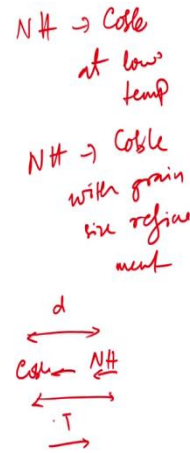 NH → Coble
at low
temp
NH → Coble
with grain
size refine
ment
d
Coble ← NH
T